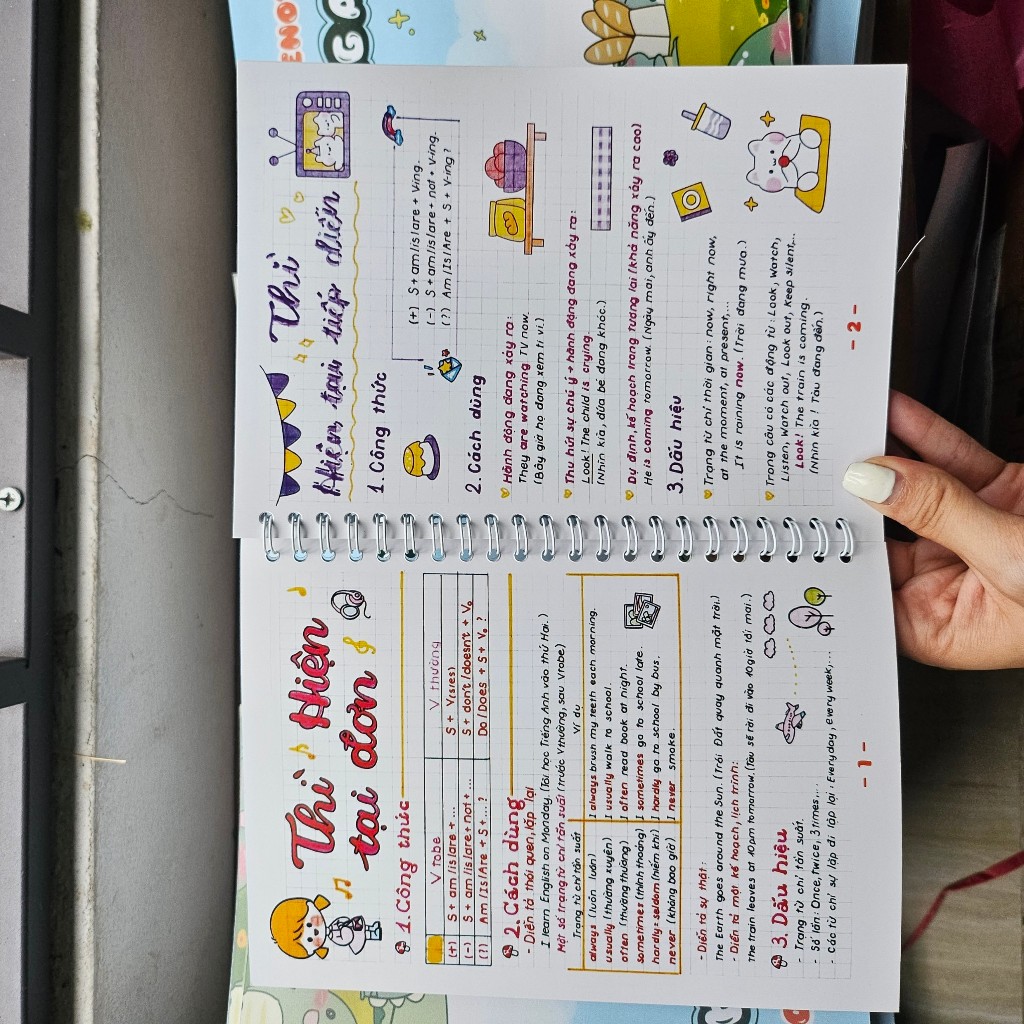 Thì Hiện
tại đơn
1. Công thức
V tobe V thường
(+) S + am/is/are + ... S + V(s/es)
(-) S + am/is/are + not + ... S + don't/doesn't + V₀
(?) Am/Is/Are + S + ... ? Do/Does + S + V₀ ?
2. Cách dùng
- Diễn tả thói quen, lặp lại
I learn English on Monday. (Tôi học Tiếng Anh vào thứ Hai.)
Một số trạng từ chỉ tần suất (trước Vthường, sau Vtobe)
Trạng từ chỉ tần suất Ví dụ
always (luôn luôn) I always brush my teeth each morning.
usually (thường xuyên) I usually walk to school.
often (thường thường) I often read book at night.
sometimes (thỉnh thoảng) I sometimes go to school late.
hardly: seldom (hiếm khi) I hardly go to school by bus.
never (không bao giờ) I never smoke.
- Diễn tả sự thật:
The Earth goes around the Sun. (Trái Đất quay quanh mặt trời.)
- Diễn tả một kế hoạch, lịch trình:
The train leaves at 10pm tomorrow. (Tàu sẽ rời đi vào 10giờ tối mai.)
3. Dấu hiệu
- Trạng từ chỉ tần suất.
- Số lần: Once, twice, 3 times,...
- Các từ chỉ sự lặp đi lặp lại: Everyday, every week,...
- 1 -
Thì
Hiện tại tiếp diễn
1. Công thức
(+) S + am/is/are + Ving.
(-) S + am/is/are + not + V-ing.
(?) Am/Is/Are + S + V-ing?
2. Cách dùng
Hành động đang xảy ra:
They are watching TV now.
(Bây giờ họ đang xem ti vi.)
Thu hút sự chú ý → hành động đang xảy ra:
Look! The child is crying.
(Nhìn kìa, đứa bé đang khóc.)
Dự định, kế hoạch trong tương lai (khả năng xảy ra cao)
He is coming tomorrow. (Ngày mai, anh ấy đến.)
3. Dấu hiệu
Trạng từ chỉ thời gian: now, right now,
at the moment, at present,...
It is raining now. (Trời đang mưa.)
Trong câu có các động từ: Look, Watch,
Listen, Watch out, Look out, Keep silent,...
Look! The train is coming.
(Nhìn kìa! Tàu đang đến.)
- 2 -